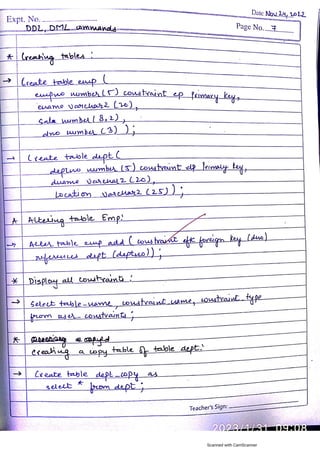 Expt. No.
Date Nov 24, 2022
DDL, DML commands
Page No. 7
* Creating tables :
→ Create table emp (
empno number (5) constraint ep Primary key,
ename varchar2 (20),
Sala number (8,2),
dno number (3) );
→ Create table dept (
deptno number (5) constraint dp Primary key,
dname varchar2 (20),
Location varchar2 (25) );
* Altering table Emp:
→ Alter table emp add ( constraint efk foreign key (dno)
references dept (deptno) );
* Display all constraints :
→ Select table-name, constraint_name, constraint_type
from user_constraints;
* creating a copy table of table dept:
→ Create table dept_copy as
select * from dept ;
Teacher's Sign:
2023/1/31 09:08
Scanned with CamScanner